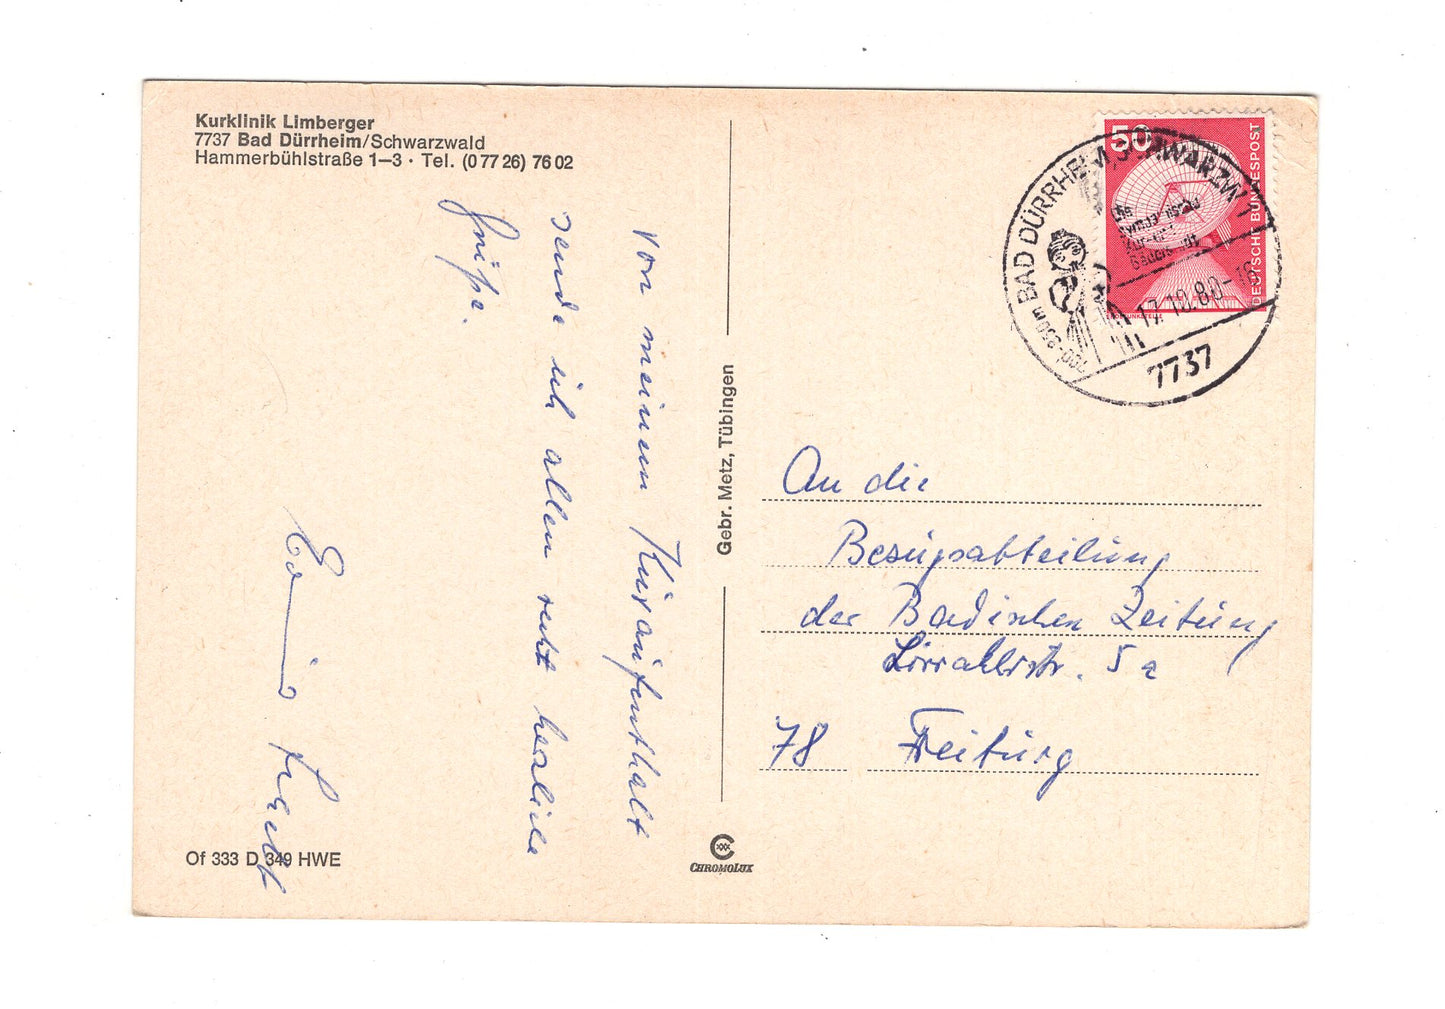 Kurklinik Limberger
7737 Bad Dürrheim/Schwarzwald
Hammerbühlstraße 1—3 · Tel. (0 77 26) 76 02
Von meinem Kuraufenthalt
sende ich allen recht herzliche
Grüße.
Gebr. Metz, Tübingen
Of 333 D 349 HWE
CHROMOLUX
50
DEUTSCHE BUNDESPOST
700-850m BAD DÜRRHEIM, SCHWARZW
17.10.80-16
7737
An die
Bezugsabteilung
der Badischen Zeitung
Lörracherstr. 5a
78 Freiburg